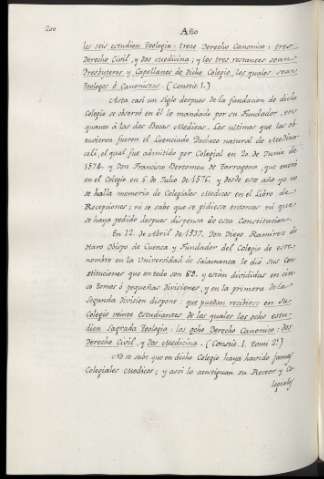 200
Año
les seis estudien Teologia: trece Derecho Canonico: tres
Derecho Civil, y dos Medicina; y los tres restantes sean
Presbiteros y Capellanes de dicho Colegio, los quales sean
Teologos ó Canonistas. (Constit. 1.)
Hasta casi un siglo despues de la fundacion de dicho
Colegio se observó en él lo mandado por su Fundador, en
quanto á las dos Becas Medicas. Los ultimos que las ob-
tuvieron fueron el Licenciado natural de Medina-
celi, el qual fue admitido por Colegial en 20. de Junio de
1574. y Don Francisco Bertomeu de Tarragona que entró
en el Colegio en 6. de Julio de 1576. y desde este año ya no
se halla memoria de Colegiales Medicos en el Libro de
Recepciones; ni se sabe que se pidiese entonces ni que
se haya pedido despues dispensa de esta Constitucion.
En 12. de Abril de 1537. Don Diego Ramirez de
Haro Obispo de Cuenca y Fundador del Colegio de este
nombre en la Universidad de Salamanca le dió sus Con-
stituciones que en todo son 53. y están divididas en cin-
co tomos ó pequeñas divisiones, y en la primera de la
Segunda division dispone: que puedan recibirse en su
Colegio veinte Estudiantes de los quales los ocho estu-
dien Sagrada Teologia: los ocho Derecho Canonico: dos
Derecho Civil, y dos Medicina. (Constit. 1. tomi 2.)
No se sabe que en dicho Colegio haya havido jamas
Colegiales Medicos; y assi lo atestiguan su Rector y Co-
legiales